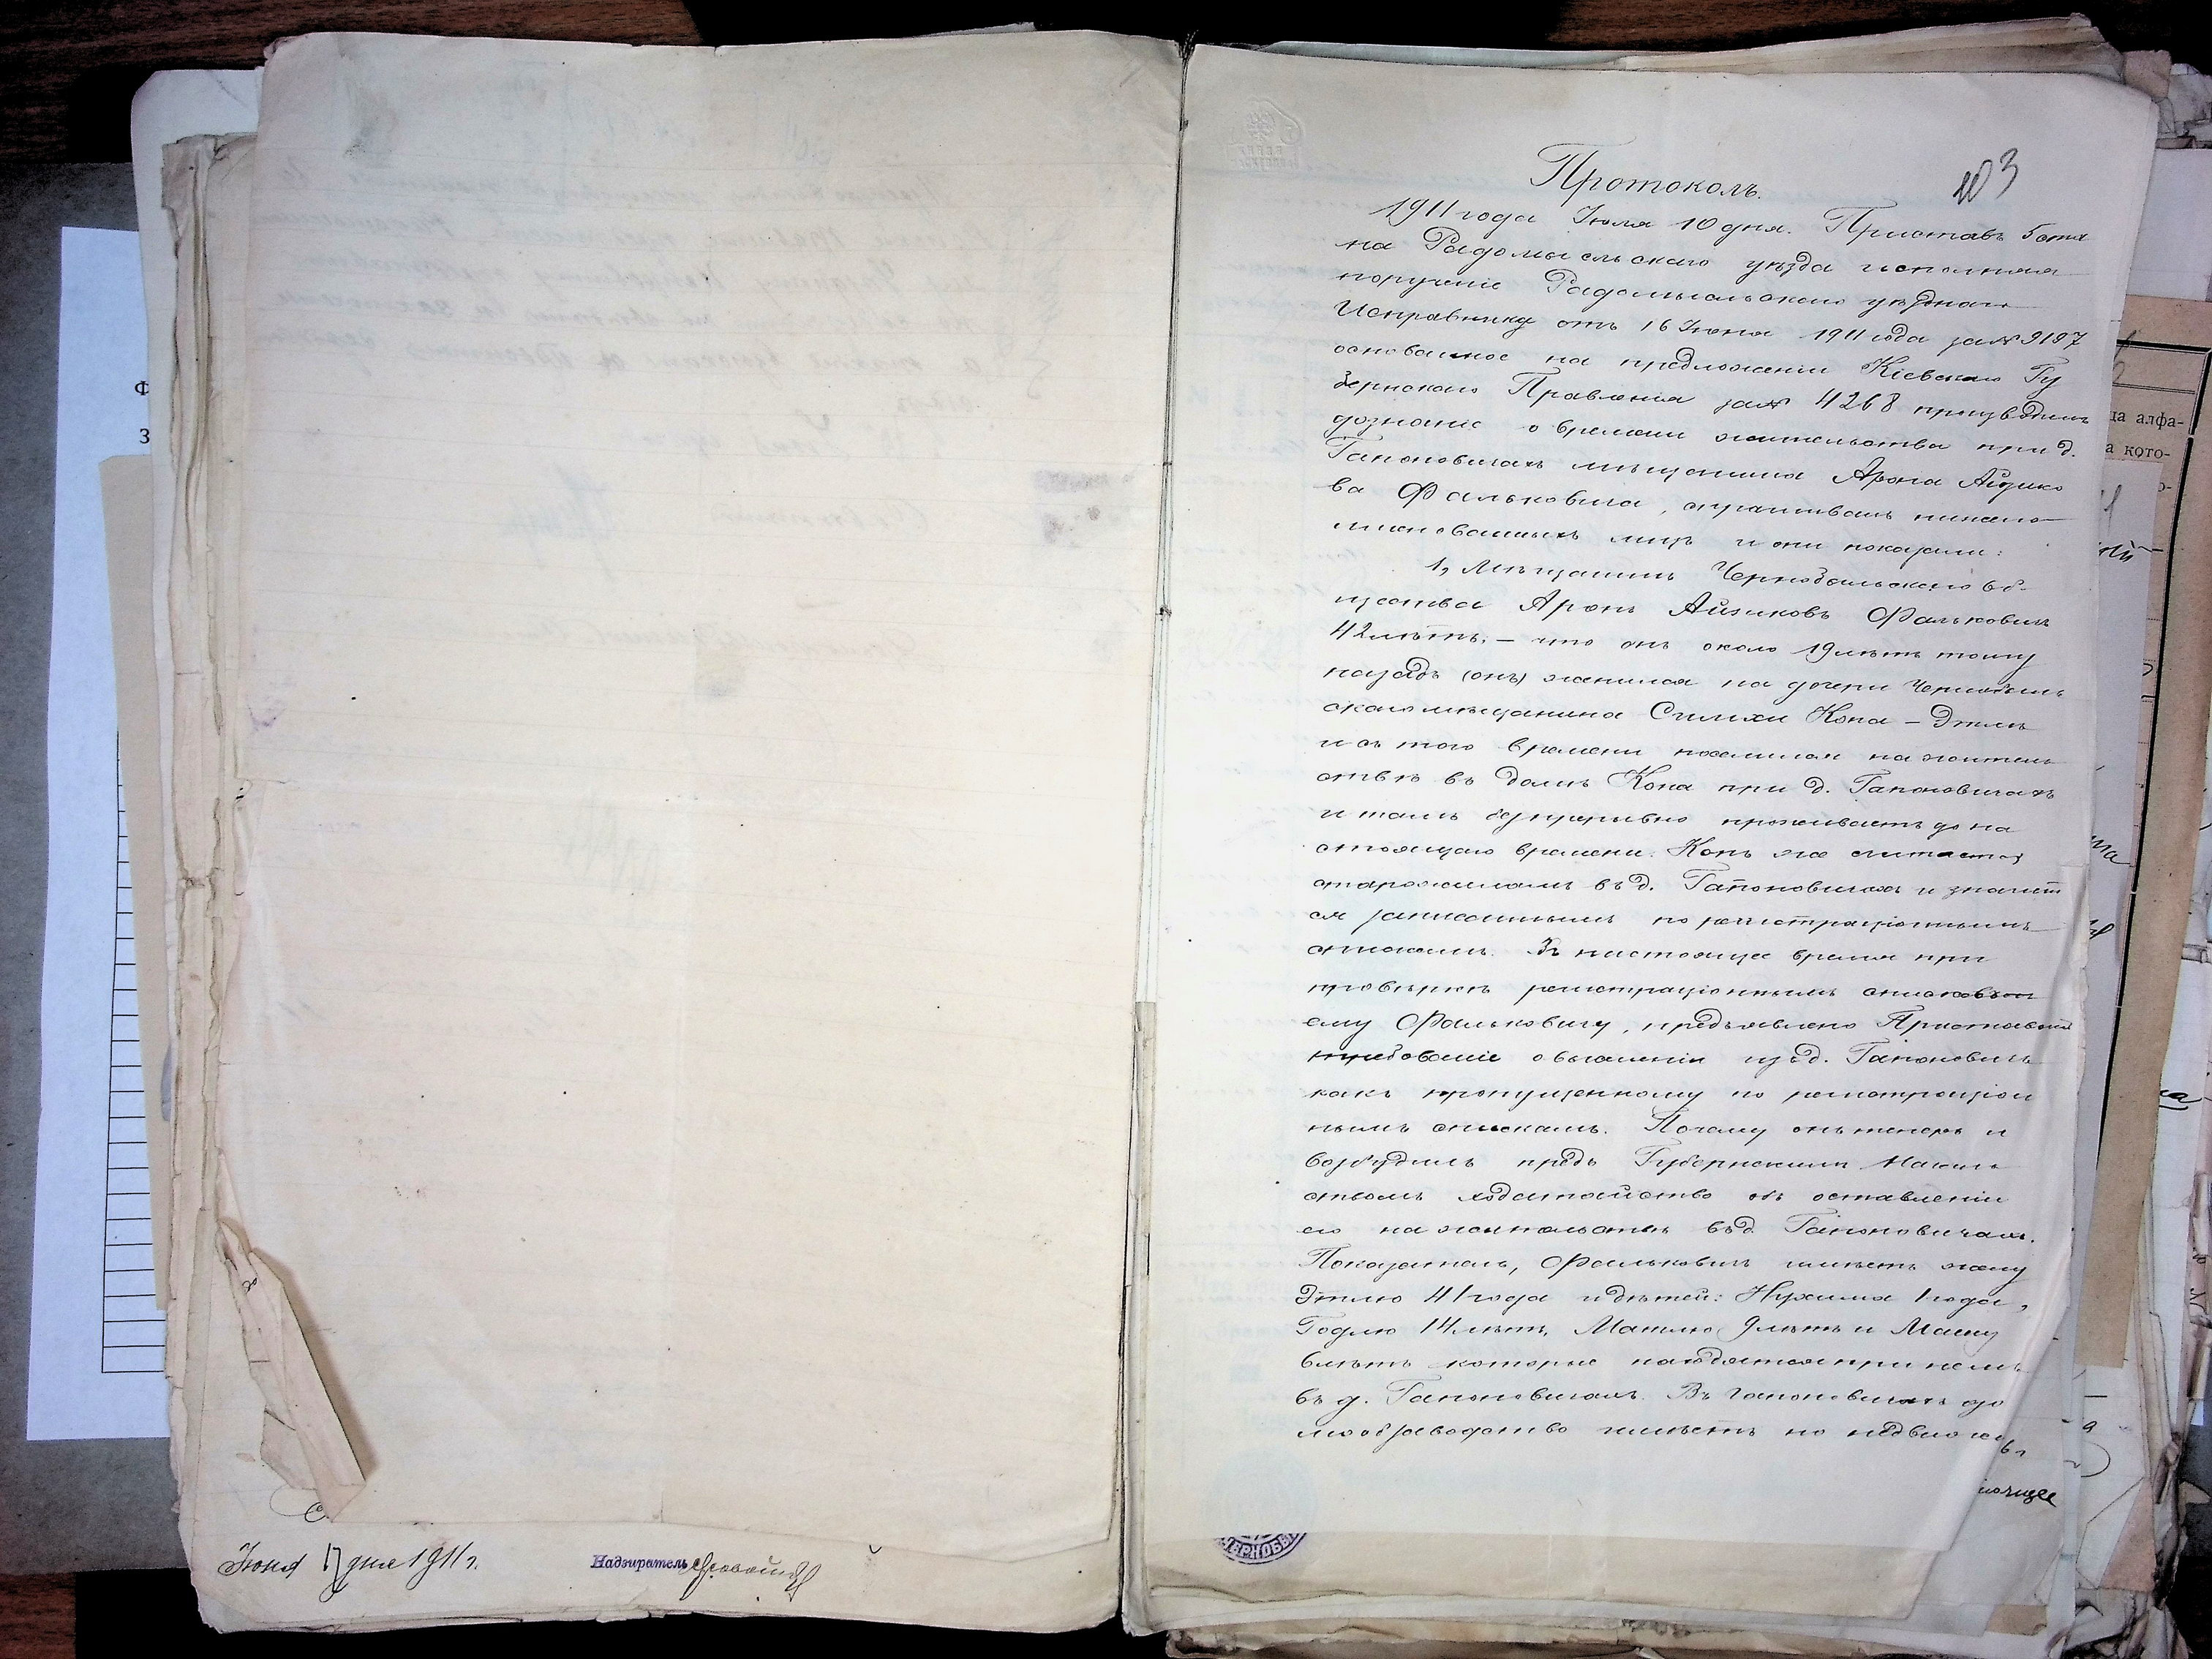 Протоколъ.
103
1911 года Іюля 10 дня. Приставъ 5 ста
на Радомысльскаго уѣзда исполняя
порученіе Радомысльскаго уѣзднаго
Исправника отъ 16 Іюня 1911 года за № 9197
основанное на предложеніи Кіевскаго Гу
бернскаго Правленія за № 4268 производилъ
дознаніе о времени жительства при д.
Гапоновичахъ мѣщанина Арона Айзико
ва Фальковича, спрашивалъ нижепо
именованныхъ лицъ и они показали:
1, Мѣщанинъ Чернобыльскаго об-
щества Аронъ Айзиковъ Фальковичъ
42 лѣтъ, – что онъ около 19 лѣтъ тому
назадъ (онъ) женился на дочери Чернобыль
скаго мѣщанина Кона – Этлѣ
и съ того времени поселился на житель
ствѣ въ домѣ Кона при д. Гапоновичахъ
и тамъ безпрерывно проживаетъ до на
стоящаго времени. Конъ же считается
старожиломъ въ д. Гапоновичахъ и значит
ся записаннымъ по регистраціоннымъ
спискамъ. Въ настоящее время при
провѣркѣ регистраціоннымъ списковъ
ему Фальковичу, предъявлено Приставомъ
требованіе о выселеніи изъ д. Гапоновичъ
какъ пропущенному по регистраціон
нымъ спискамъ. Почему онъ теперь и
возбудилъ предъ Губернскимъ Началь
ствомъ ходатайство объ оставленіи
его на жительствѣ въ д. Гапоновичахъ.
Показатель, Фальковичъ имѣетъ жену
Этлю 41 года и дѣтей: Нухима 1 года,
Годлю 14 лѣтъ, Матлю 9 лѣтъ и Машу
6 лѣтъ которые находятся при немъ
въ д. Гапоновичахъ. Въ Гапоновичахъ до
мообзаводство имѣетъ но недвижи
Іюня 17 дня 1911 г.
Надзиратель
ЧЕРНОБЫ